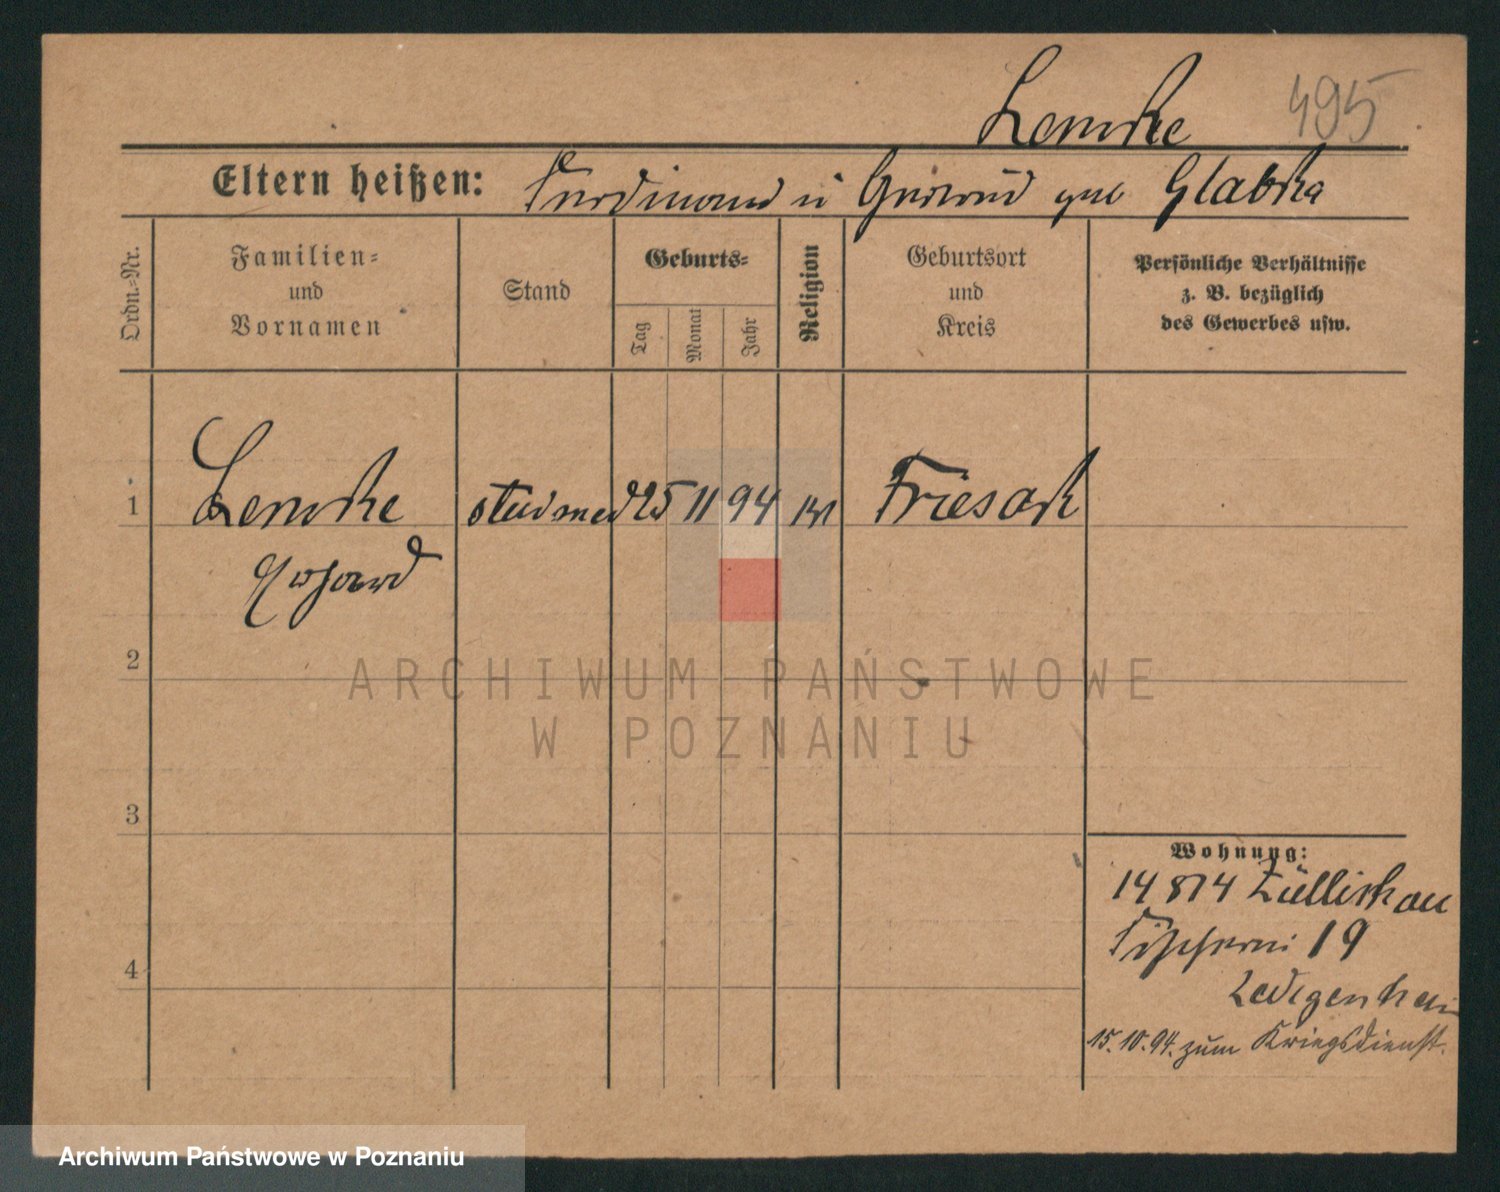 Lemke 495
Eltern heißen: Ferdinand u Gertrud geb Glabka
Ordn.-Nr.
Familien-
und
Vornamen
Stand
Geburts-
Tag
Monat
Jahr
Religion
Geburtsort
und
Kreis
Persönliche Verhältnisse
z. B. bezüglich
des Gewerbes usw.
1 Lemke stud med 25 11 94 Friesack
Erhard
2
ARCHIWUM PAŃSTWOWE
W POZNANIU
3
Wohnung:
14 8 14 Züllichau
19
4
Ledigenheim
15.10.94. zum Kriegsdienst.
Archiwum Państwowe w Poznaniu